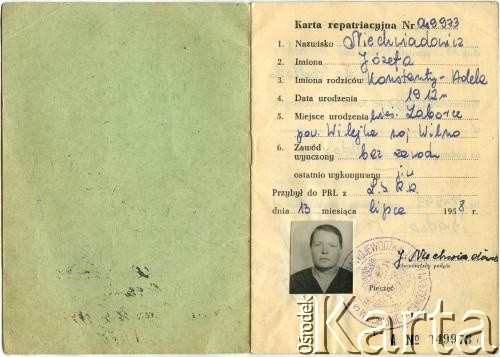 Karta repatriacyjna Nr 049973
1. Nazwisko Niechwiadowicz
2. Imiona Józefa
3. Imiona rodziców Konstanty - Adela
4. Data urodzenia 1912 r
5. Miejsce urodzenia wieś. Zaborce
pow. Wilejka woj Wilno
6. Zawód
wyuczony bez zawodu
ostatnio wykonywany j.w
Przybył do PRL z
dnia 13 miesiąca lipca 1958 r.
J. Niechwiadowicz
własnoręczny podpis
Pieczęć
A № 049973
Ośrodek
Karta